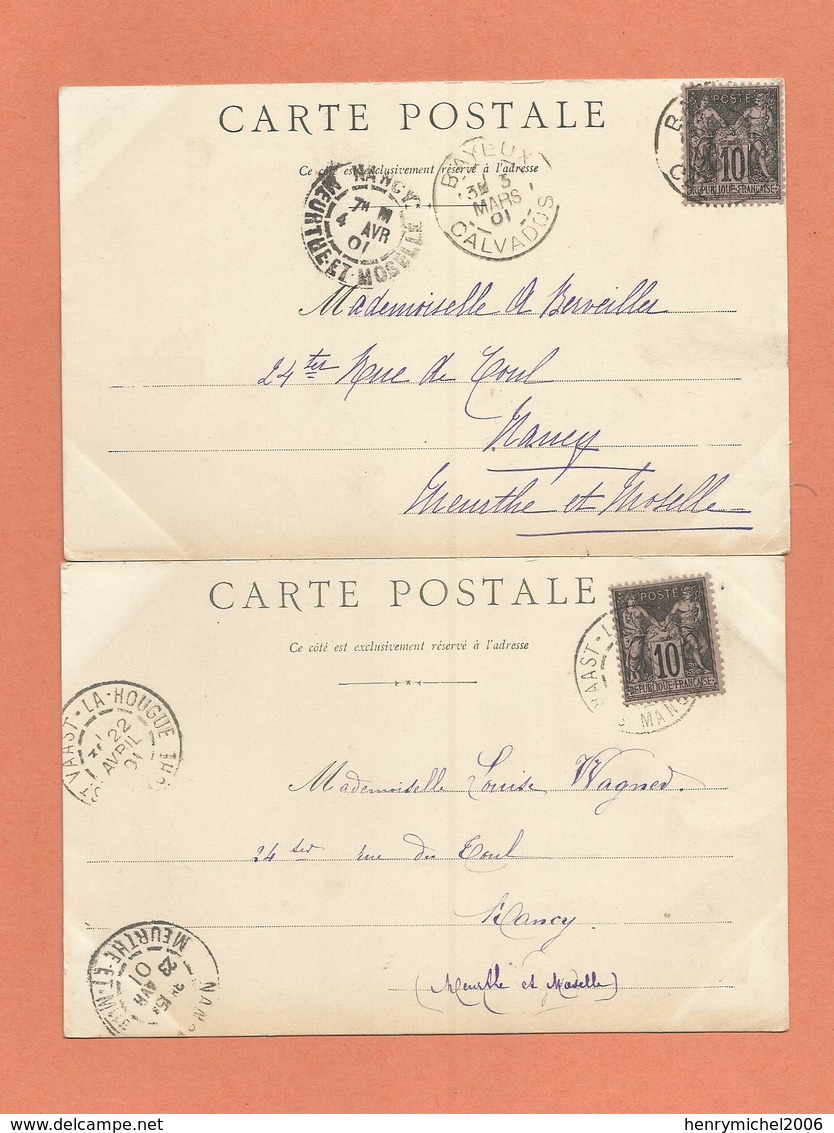 CARTE POSTALE
Ce côté est exclusivement réservé à l'adresse
POSTE
10
RÉPUBLIQUE FRANÇAISE
NANCY
7H M
4 AVR
01
MEURTHE-ET-MOSELLE
BAYEUX
3
MARS
01
CALVADOS
Mademoiselle A Berveiller
24ter Rue de Toul
Nancy
Meurthe et Moselle
CARTE POSTALE
Ce côté est exclusivement réservé à l'adresse
POSTE
10
RÉPUBLIQUE FRANÇAISE
VAAST-L
MANC
ST VAAST-LA-HOUGUE
22
AVRIL
01
Mademoiselle Louise Wagner.
24 ter rue de Toul
Nancy.
(Meurthe et Moselle)
NANC
23 AVR
01
MEURTHE-ET-MLLE
delcampe.net
henrymichel2006